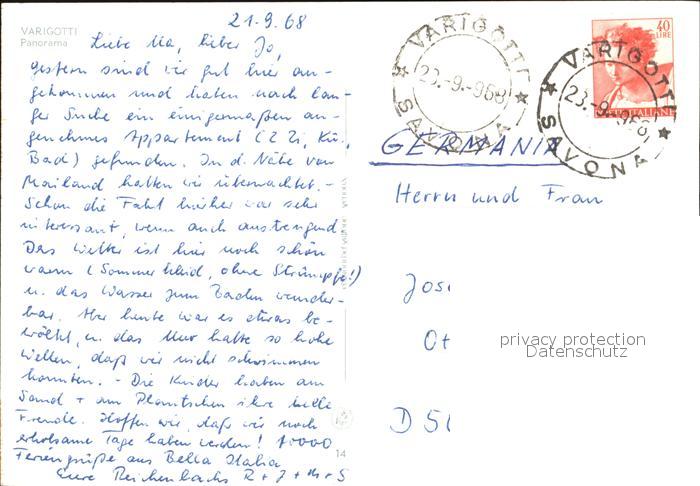 VARIGOTTI
Panorama
21.9.68
Liebe Ma, lieber Jo,
gestern sind wir gut hier an-
gekommen und haben nach lan-
ger Suche ein einigermaßen an-
genehmes Appartement (2 Zi, Kü,
Bad) gefunden. In d. Nähe von
Mailand hatten wir übernachtet. -
Schon die Fahrt hierher war sehr
interessant, wenn auch anstrengend.
Das Wetter ist hier noch schön
warm (Sommerkleid, ohne Strümpfe!)
u. das Wasser zum Baden wunder-
bar. Aber heute war es etwas be-
wölkt, u. das Meer hatte so hohe
Wellen, daß wir nicht schwimmen
konnten. - Die Kinder haben am
Sand + am Plantschen ihre helle
Freude. Hoffen wir, daß wir noch
erholsame Tage haben werden! 10000
Feriengrüße aus Bella Italia
Eure Reichenbachs R + J + M + S
14
VARIGOTTI
23.-9.-968
SAVONA
40
LIRE
ITALIANE
VARIGOTTI
23.-9.-968
SAVONA
GERMANIA
Herrn und Frau
Josi
Ot
D 51
privacy protection
Datenschutz